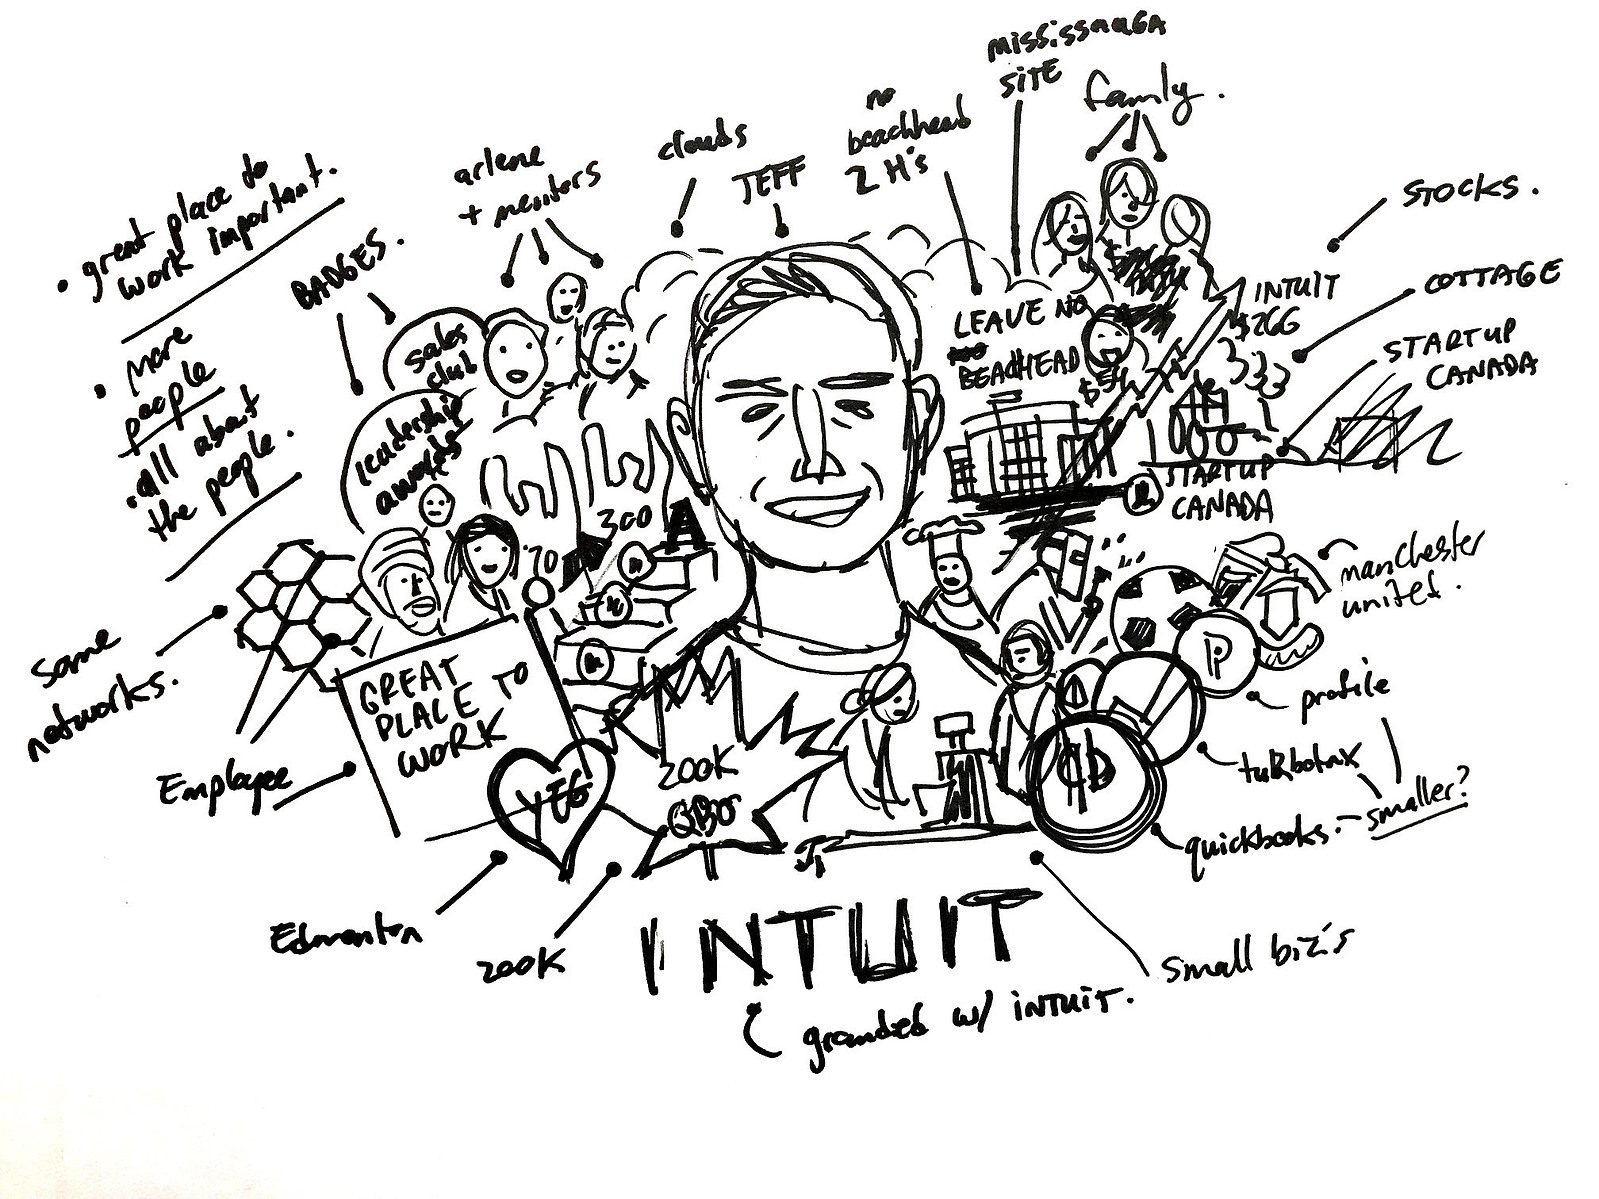 mississauga
site
family.
no
beachhead
2 H's
clouds
JEFF
arlene
+ mentors
• great place to
work important.
BADGES.
STOCKS.
COTTAGE
STARTUP
CANADA
INTUIT
$26G
LEAVE NO
BEACHHEAD
$54
• More
people
• all about
the people.
sales
club
leadership
awards
300
70
STARTUP
CANADA
manchester
united.
P
some
networks.
GREAT
PLACE TO
WORK
profile
Employee
YEG
200K
QBO
turbotax
smaller?
quickbooks.
Edmonton
200K
INTUIT
small biz's
grounded w/ INTUIT.